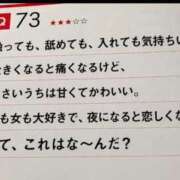 Q 73 ★★★☆☆
っても、舐めても、入れても気持ちい
きくなると痛くなるけど、
さいうちは甘くてかわいい。
も女も大好きで、夜になると恋しくな
て、これはな〜んだ?